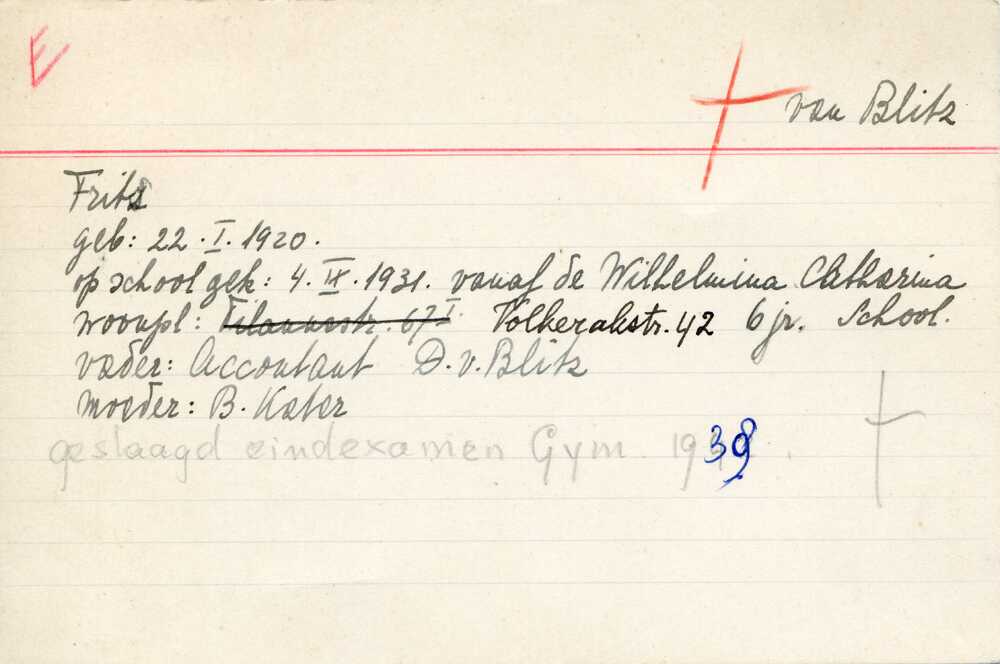 E
van Blitz
Frits
geb: 22.I.1920.
op school gek: 4.IX.1931. vanaf de Wilhelmina Catharina
woonpl: 67 I. Volkerakstr. 42 6 jr. School.
vader: Accountant D.v.Blitz
moeder: B. Kater
geslaagd eindexamen Gym. 1939.